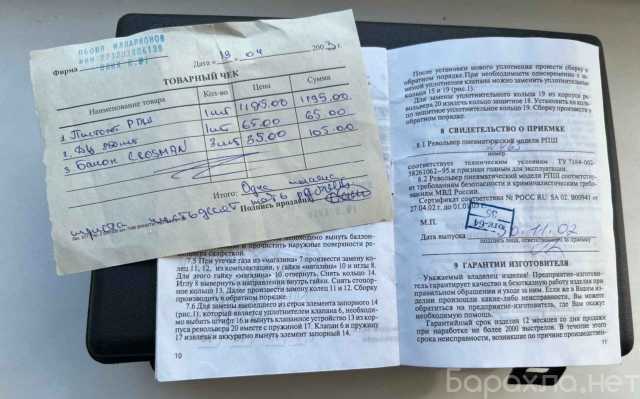 ПБОЮЛ ИЛЛАРИОНОВ
Фирма
Дата „19" 04 2003 г.
ТОВАРНЫЙ ЧЕК
Наименование товара Кол-во Цена Сумма
1 Пистолет РПШ 1 шт 1195.00 1195.00
2 1 шт 65.00 65.00
3 Балон CROSMAN 3 шт 35.00 105.00
Итого: Одна тысяча
триста шестьдесят пять рублей
Подпись продавца
необходимо вынуть баллон-
и прочистить наружные поверхности ре-
7.5 При утечке газа из «магазина» произвести замену ко-
лец 11, 12, из комплектации, у гайки «магазина» 10 и иглы 8.
Для этого гайку «магазина» 10 отвернуть. Снять кольцо 14.
Иглу 8 вывернуть в направлении внутрь гайки. Снять стопор-
ное кольцо 13. Далее произвести замену колец 11 и 12. Сборку
производить в обратном порядке.
7.6 Для замены вышедшего из строя элемента запорного 14
(рис.1), который является уплотнителем клапана 6, необходи-
мо выбить штифт 16 и вынуть клапанное устройство 13 из кор-
пуса револьвера 20 вместе с пружиной 17. Клапан 6 и пружину
17 извлечь и аккуратно вынуть элемент запорный 14.
10
После установки нового уплотнения провести сборку в
обратном порядке. При необходимости одновременно с за-
меной уплотнения клапана можно заменить уплотнительные
кольца 15 и 19 (рис.1).
Для замены уплотнительного кольца 19 из корпуса ре-
вольвера 20 извлечь кольцо защитное 18. Установить на коль-
цо защитное уплотнительное кольцо 19. Сборку произвести в
обратном порядке.
8 СВИДЕТЕЛЬСТВО О ПРИЕМКЕ
8.1 Револьвер пневматический модели РПШ
номер
соответствует техническим условиям ТУ 7184-002-
38261062-95 и признан годным для эксплуатации.
8.2 Револьвер пневматический модели РПШ соответству-
ет требованиям безопасности и криминалистическим требо-
ваниям МВД России.
Сертификат соответствия № РОСС RU SA 02. В00941 от
27.04.02 г. до 01.0
М.П.
Дата выпуска 30.11.02
подпись лица, ответственного за приемку
9 ГАРАНТИИ ИЗГОТОВИТЕЛЯ
Уважаемый владелец изделия! Предприятие-изготови-
тель гарантирует качество и безотказную работу изделия при
правильном обращении и уходе за ним. Если же в Вашем из-
делии произошли какие-либо неисправности, Вы можете
обратиться на предприятие-изготовитель, где Вам окажут
необходимую помощь.
Гарантийный срок изделия 12 месяцев со дня продажи
при наработке не более 2000 выстрелов. В течение этого
срока неисправности, возникшие по причине производствен-
11
Барахла.нет